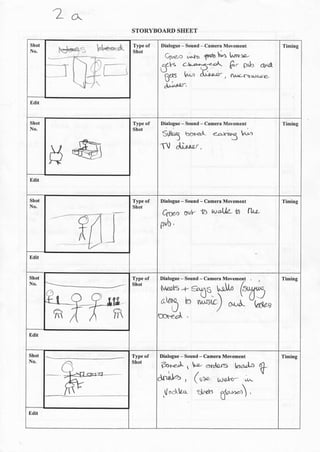 2 a
STORYBOARD SHEET
Shot No.
Type of Shot
Dialogue – Sound – Camera Movement
Timing
Goes into his house
gets changed for pub and
gets his dinner, microwave
dinner.
Edit
Shot No.
Type of Shot
Dialogue – Sound – Camera Movement
Timing
Sitting bored eating his
TV dinner.
Edit
Shot No.
Type of Shot
Dialogue – Sound – Camera Movement
Timing
Goes out to walk to the
pub.
Edit
Shot No.
Type of Shot
Dialogue – Sound – Camera Movement
Timing
Meets + Says hello (singing
along to music) and looks
bored.
Edit
Shot No.
Type of Shot
Dialogue – Sound – Camera Movement
Timing
Bored, he orders loads of
drinks, (use water in
Vodka shots glasses).
Edit